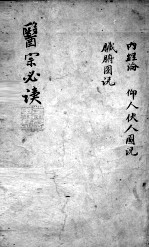 內經論 仰人伏人圖说
臟腑圖说
醫宗必读